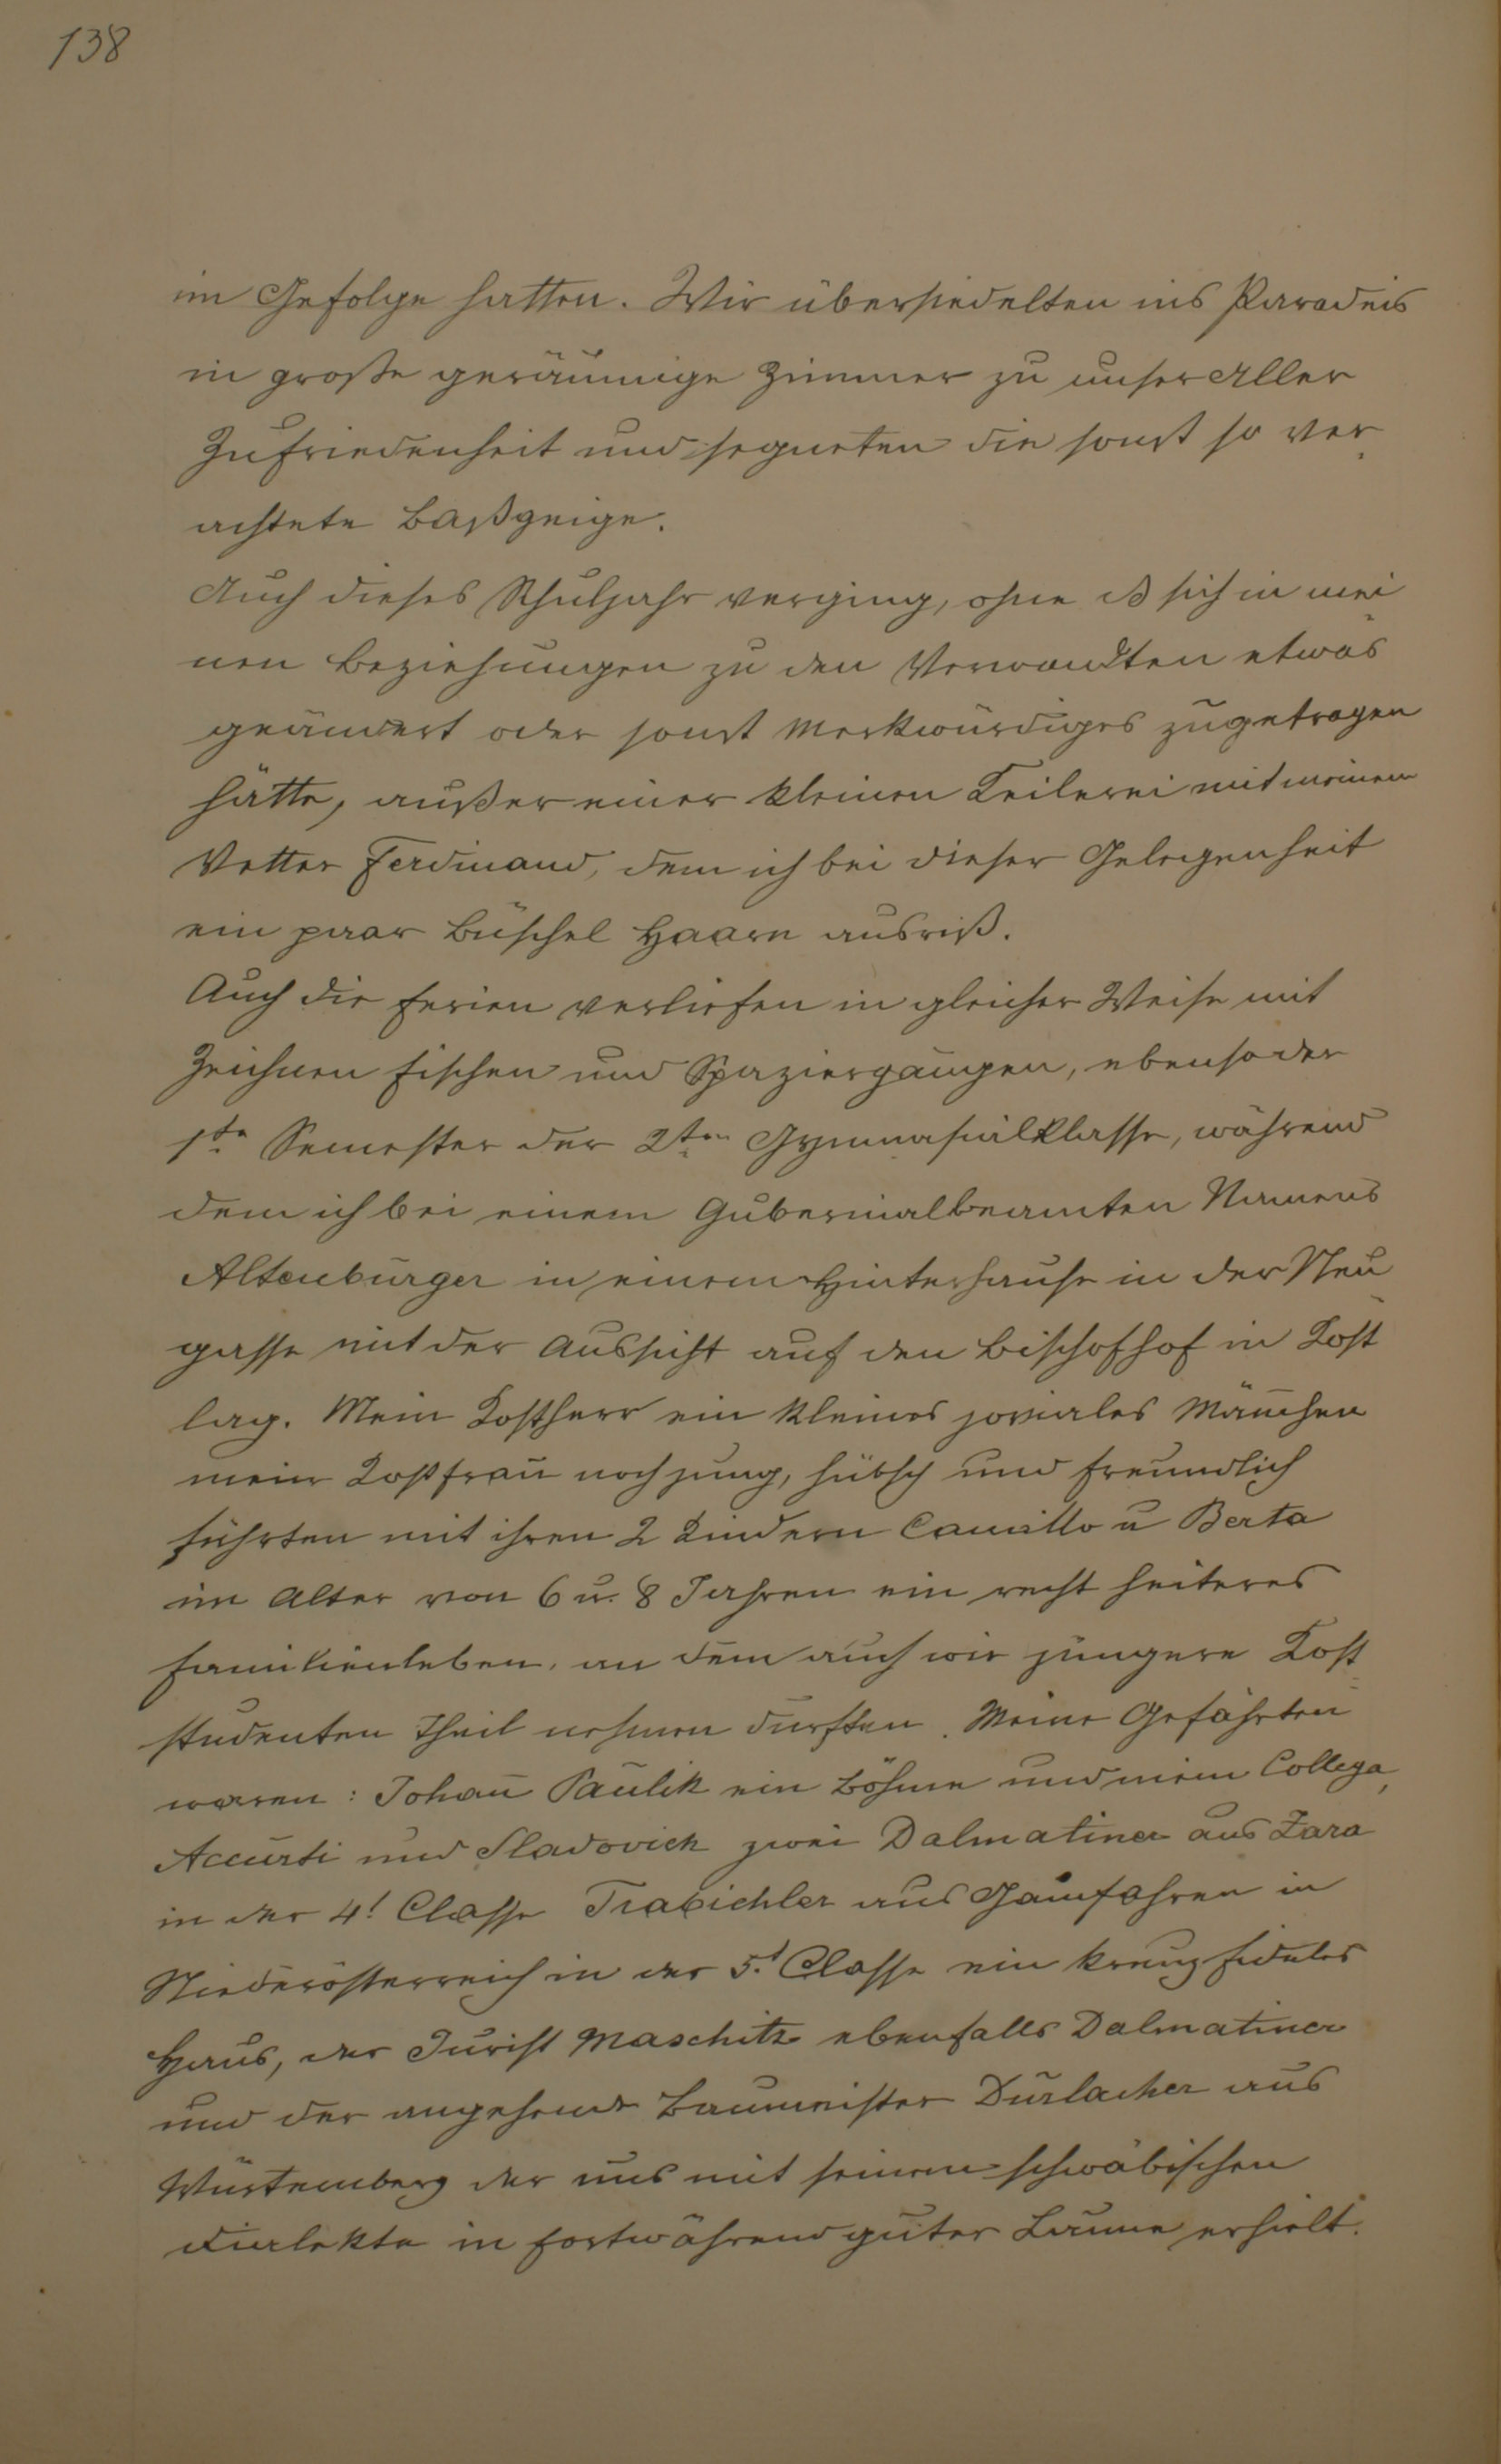 138
im Gefolge hatten. Wir übersiedelten ins Paradeis
in große geräumige Zimmer zu unser Aller
Zufriedenheit und segneten die sonst so ver
achtete Baßgeige.
Auch dieses Schuljahr verging, ohne daß sich in mei
nen Beziehungen zu den Verwandten etwas
geändert oder sonst Merkwürdiges zugetragen
hätte, außer einer kleinen Keilerei mit meinem
Vetter Ferdinand, dem ich bei dieser Gelegenheit
ein paar Büschel Haare ausriß.
Auch die Ferien verliefen in gleicher Weise mit
Zeichnen Fischen und Spaziergängen, ebenso der
1te Semester der 2ten Gymnasialklasse, während
dem ich bei einem Gubernialbeamten Namens
Altenburger in einem Hinterhause in der Neu
gasse mit der Aussicht auf den Bischofhof in Kost
lag. Mein Kostherr ein kleines joviales Mañchen
meine Kostfrau noch jung, hübsch und freundlich
führten mit ihren 2 Kindern Camillo u Berta
im Alter von 6 u. 8 Jahren ein recht heiteres
Familienleben, an dem auch wir jüngere Kost
studenten Theil nehmen durften. Meine Gefährten
waren: Johañ Paulik ein Böhme und mein Collega,
Accurti und Sladovich zwei Dalmatiner aus Zara
in der 4t Classe Trabichler aus Gainfahren in
Niederösterreich in der 5.t Classe ein kreuzfideles
Haus, der Jurist Maschitz ebenfalls Dalmatiner
und der angehende Baumeister Durlacher aus
Würtemberg der uns mit seinem schwäbischen
Dialekte in fortwährend guter Laune erhielt.